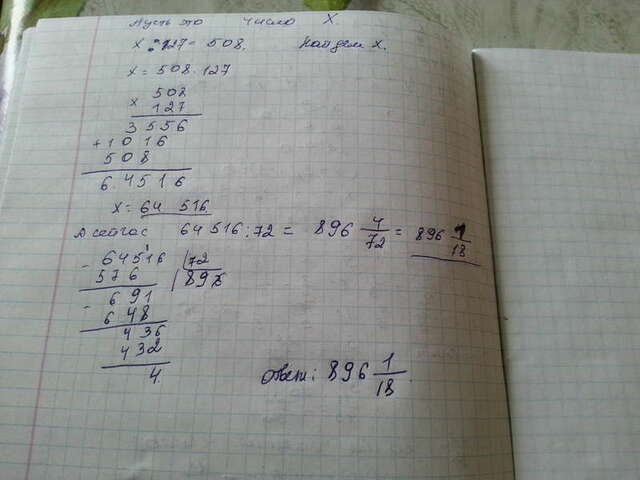 Пусть это число X.
X : 127 = 508. Найдем X.
X = 508 · 127
× 508
127
3556
+ 1016
508
6.4516
X = 64 516
А сейчас 64 516 : 72 = 896 4/72 = 896 1/18
- 64516 | 72
576 | 896
- 691
648
436
432
4
Ответ: 896 1/18.